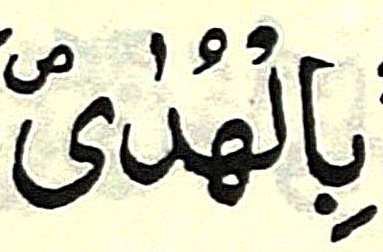 بِالْهُدٰىۖ